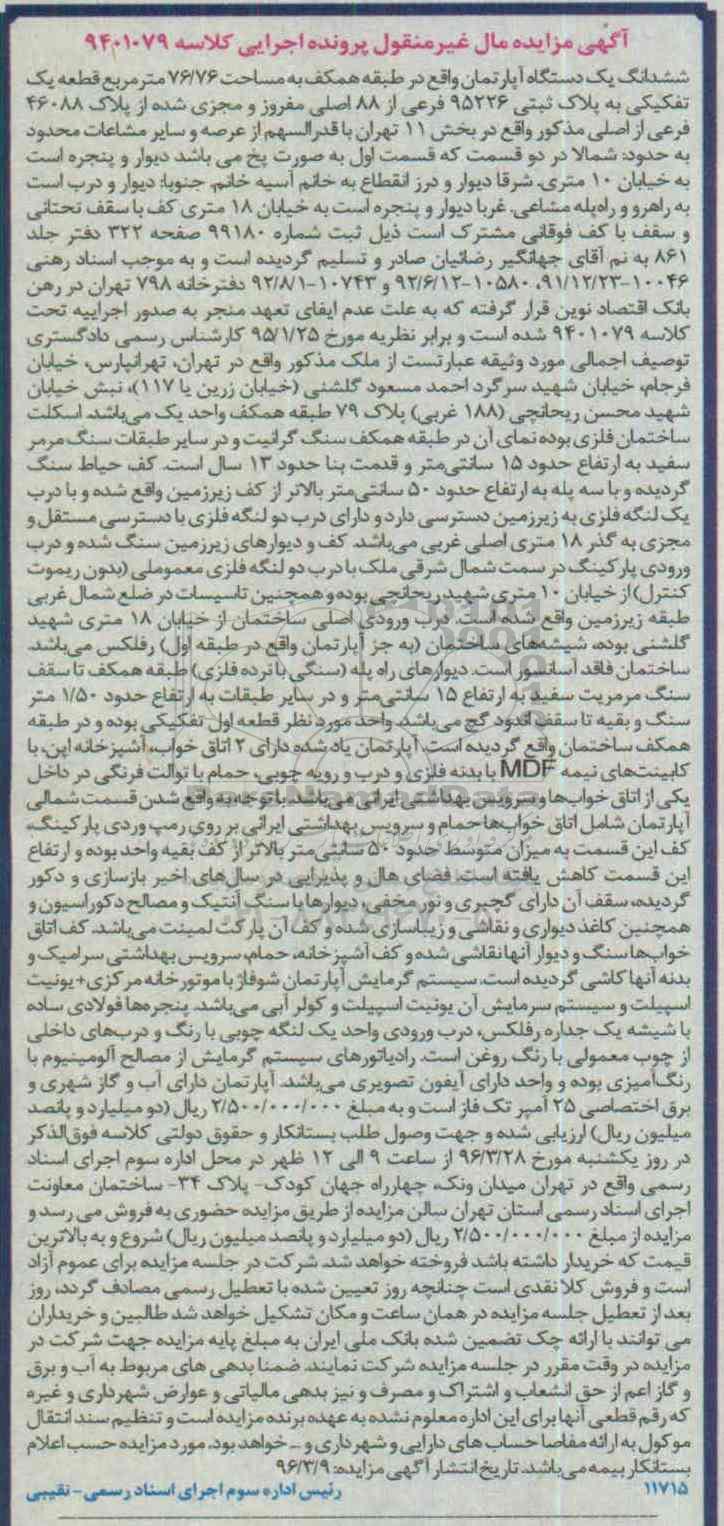 آگهی مزایده مال غیرمنقول پرونده اجرایی کلاسه ۹۴۰۱۰۷۹
ششدانگ یک دستگاه آپارتمان واقع در طبقه همکف به مساحت ۷۶/۷۶ متر مربع قطعه یک
تفکیکی به پلاک ثبتی ۹۵۲۲۶ فرعی از ۸۸ اصلی مفروز و مجزی شده از پلاک ۴۶۰۸۸
فرعی از اصلی مذکور واقع در بخش ۱۱ تهران با قدرالسهم از عرصه و سایر مشاعات محدود
به حدود: شمالا در دو قسمت که قسمت اول به صورت پخ می باشد دیوار و پنجره است
به خیابان ۱۰ متری. شرقا دیوار و درز انقطاع به خانم آسیه خانم. جنوبا: دیوار و درب است
به راهرو و راه‌پله مشاعی. غربا دیوار و پنجره است به خیابان ۱۸ متری کف با سقف تحتانی
و سقف با کف فوقانی مشترک است ذیل ثبت شماره ۹۹۱۸۰ صفحه ۳۲۲ دفتر جلد
۸۶۱ به نم آقای جهانگیر رضائیان صادر و تسلیم گردیده است و به موجب اسناد رهنی
۱۰۰۴۶-۹۱/۱۲/۲۳، ۱۰۵۸۰-۹۲/۶/۱۲ و ۱۰۷۴۳-۹۲/۸/۱ دفترخانه ۷۹۸ تهران در رهن
بانک اقتصاد نوین قرار گرفته که به علت عدم ایفای تعهد منجر به صدور اجراییه تحت
کلاسه ۹۴۰۱۰۷۹ شده است و برابر نظریه مورخ ۹۵/۱/۲۵ کارشناس رسمی دادگستری
توصیف اجمالی مورد وثیقه عبارتست از ملک مذکور واقع در تهران، تهرانپارس، خیابان
فرجام، خیابان شهید سرگرد احمد مسعود گلشنی (خیابان زرین یا ۱۱۷)، نبش خیابان
شهید محسن ریحانچی (۱۸۸ غربی) پلاک ۷۹ طبقه همکف واحد یک می‌باشد. اسکلت
ساختمان فلزی بوده نمای آن در طبقه همکف سنگ گرانیت و در سایر طبقات سنگ مرمر
سفید به ارتفاع حدود ۱۵ سانتی‌متر و قدمت بنا حدود ۱۳ سال است. کف حیاط سنگ
گردیده و با سه پله به ارتفاع حدود ۵۰ سانتی‌متر بالاتر از کف زیرزمین واقع شده و با درب
یک لنگه فلزی به زیرزمین دسترسی دارد و دارای درب دو لنگه فلزی با دسترسی مستقل و
مجزی به گذر ۱۸ متری اصلی غربی می‌باشد. کف و دیوارهای زیرزمین سنگ شده و درب
ورودی پارکینگ در سمت شمال شرقی ملک با درب دو لنگه فلزی معمومولی (بدون ریموت
کنترل) از خیابان ۱۰ متری شهید ریحانچی بوده و همچنین تاسیسات در ضلع شمال غربی
طبقه زیرزمین واقع شده است. درب ورودی اصلی ساختمان از خیابان ۱۸ متری شهید
گلشنی بوده، شیشه‌های ساختمان (به جز آپارتمان واقع در طبقه اول) رفلکس می‌باشد.
ساختمان فاقد آسانسور است. دیوارهای راه پله (سنگی با نرده فلزی) طبقه همکف تا سقف
سنگ مرمریت سفید به ارتفاع ۱۵ سانتی‌متر و در سایر طبقات به ارتفاع حدود ۱/۵۰ متر
سنگ و بقیه تا سقف اندود گچ می‌باشد. واحد مورد نظر قطعه اول تفکیکی بوده و در طبقه
همکف ساختمان واقع گردیده است. آپارتمان یاد شده دارای ۲ اتاق خواب، آشپزخانه اپن، با
کابینت‌های نیمه MDF با بدنه فلزی و درب و رویه چوبی، حمام با توالت فرنگی در داخل
یکی از اتاق خواب‌ها و سرویس بهداشتی ایرانی می‌باشد. با توجه به واقع شدن قسمت شمالی
آپارتمان شامل اتاق خواب‌ها حمام و سرویس بهداشتی ایرانی بر روی رمپ وردی پارکینگ،
کف این قسمت به میزان متوسط حدود ۵۰ سانتی‌متر بالاتر از کف بقیه واحد بوده و ارتفاع
این قسمت کاهش یافته است. فضای هال و پذیرایی در سال‌های اخیر بازسازی و دکور
گردیده، سقف آن دارای گچبری و نور مخفی، دیوارها با سنگ آنتیک و مصالح دکوراسیون و
همچنین کاغذ دیواری و نقاشی و زیباسازی شده و کف آن پارکت لمینت می‌باشد. کف اتاق
خواب‌ها سنگ و دیوار آنها نقاشی شده و کف آشپزخانه، حمام، سرویس بهداشتی سرامیک و
بدنه آنها کاشی گردیده است. سیستم گرمایش آپارتمان شوفاژ با موتورخانه مرکزی+یونیت
اسپیلت و سیستم سرمایش آن یونیت اسپیلت و کولر آبی می‌باشد. پنجره‌ها فولادی ساده
با شیشه یک جداره رفلکس، درب ورودی واحد یک لنگه چوبی با رنگ و درب‌های داخلی
از چوب معمولی با رنگ روغن است. رادیاتورهای سیستم گرمایش از مصالح آلومینیوم با
رنگ‌آمیزی بوده و واحد دارای آیفون تصویری می‌باشد. آپارتمان دارای آب و گاز شهری و
برق اختصاصی ۲۵ آمپر تک فاز است و به مبلغ ۲/۵۰۰/۰۰۰/۰۰۰ ریال (دو میلیارد و پانصد
میلیون ریال) ارزیابی شده و جهت وصول طلب بستانکار و حقوق دولتی کلاسه فوق‌الذکر
در روز یکشنبه مورخ ۹۶/۳/۲۸ از ساعت ۹ الی ۱۲ ظهر در محل اداره سوم اجرای اسناد
رسمی واقع در تهران میدان ونک، چهارراه جهان کودک- پلاک ۳۴- ساختمان معاونت
اجرای اسناد رسمی استان تهران سالن مزایده از طریق مزایده حضوری به فروش می رسد و
مزایده از مبلغ ۲/۵۰۰/۰۰۰/۰۰۰ ریال (دو میلیارد و پانصد میلیون ریال) شروع و به بالاترین
قیمت که خریدار داشته باشد فروخته خواهد شد. شرکت در جلسه مزایده برای عموم آزاد
است و فروش کلا نقدی است چنانچه روز تعیین شده با تعطیل رسمی مصادف گردد، روز
بعد از تعطیل جلسه مزایده در همان ساعت و مکان تشکیل خواهد شد طالبین و خریداران
می توانند با ارائه چک تضمین شده بانک ملی ایران به مبلغ پایه مزایده جهت شرکت در
مزایده در وقت مقرر در جلسه مزایده شرکت نمایند. ضمنا بدهی های مربوط به آب و برق
و گاز اعم از حق انشعاب و اشتراک و مصرف و نیز بدهی مالیاتی و عوارض شهرداری و غیره
که رقم قطعی آنها برای این اداره معلوم نشده به عهده برنده مزایده است و تنظیم سند انتقال
موکول به ارائه مفاصا حساب های دارایی و شهرداری و ... خواهد بود. مورد مزایده حسب اعلام
بستانکار بیمه می‌باشد. تاریخ انتشار آگهی مزایده: ۹۶/۳/۹
۱۱۷۱۵ رئیس اداره سوم اجرای اسناد رسمی- نقیبی